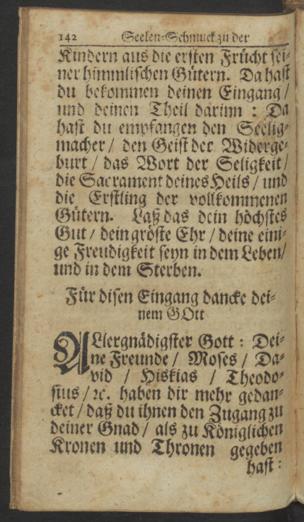 142 Seelen-Schmuck zu der
Kindern aus die ersten Frücht sei-
ner himmlischen Gütern. Da hast
du bekommen deinen Eingang /
und deinen Theil darinn : Da
hast du empfangen den Seelig-
macher / den Geist der Widerge-
burt / das Wort der Seligkeit /
die Sacrament deines Heils / und
die Erstling der vollkommenen
Gütern. Laß das dein höchstes
Gut / dein gröste Ehr / deine eini-
ge Freudigkeit seyn in dem Leben /
und in dem Sterben.
Für disen Eingang dancke dei-
nem GOtt
ALlergnädigster Gott : Dei-
ne Freunde / Moses / Da-
vid / Hiskias / Theodo-
sius / ꝛc. haben dir mehr gedan-
cket / daß du ihnen den Zugang zu
deiner Gnad / als zu Königlichen
Kronen und Thronen gegeben
hast :